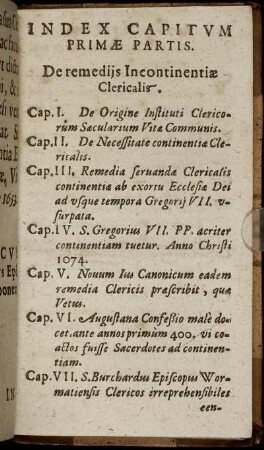 INDEX CAPITVM
PRIMÆ PARTIS.
De remedijs Incontinentiæ
Clericalis.
Cap. I. De Origine Instituti Clerico-
rum Sæcularium Vitæ Communis.
Cap. II. De Necessitate continentiæ Cle-
ricalis.
Cap. III. Remedia seruandæ Clericalis
continentiæ ab exortu Ecclesiæ Dei
ad vsque tempora Gregorij VII. v-
surpata.
Cap. IV. S. Gregorius VII. PP. acriter
continentiam tuetur. Anno Christi
1074.
Cap. V. Nouum Ius Canonicum eadem
remedia Clericis præscribit, quæ
Vetus.
Cap. VI. Augustana Confessio malè do-
cet, ante annos primùm 400. vi co-
actos fuisse Sacerdotes ad continen-
tiam.
Cap. VII. S. Burchardus Episcopus Wor-
matiensis Clericos irreprehensibiles
cen-